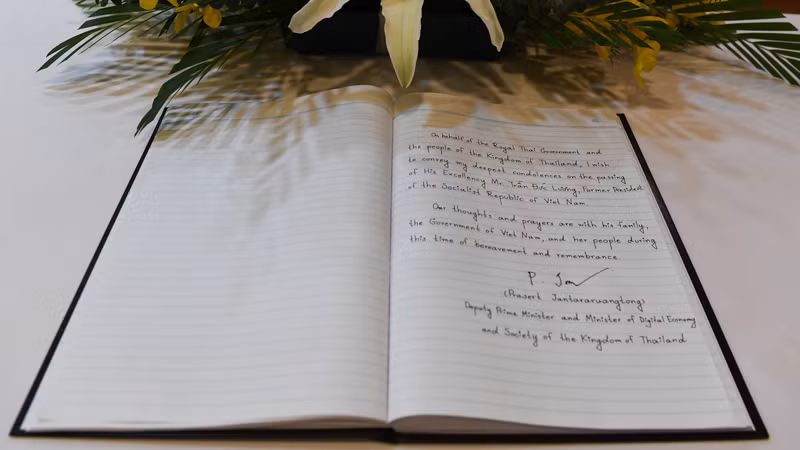 On behalf of the Royal Thai Government and
the people of the Kingdom of Thailand, I wish
to convey my deepest condolences on the passing
of His Excellency Mr. Trần Đức Lương, Former President
of the Socialist Republic of Viet Nam.
Our thoughts and prayers are with his family,
the Government of Viet Nam, and her people during
this time of bereavement and remembrance.
(Prasert Jantararuangtong)
Deputy Prime Minister and Minister of Digital Economy
and Society of the Kingdom of Thailand